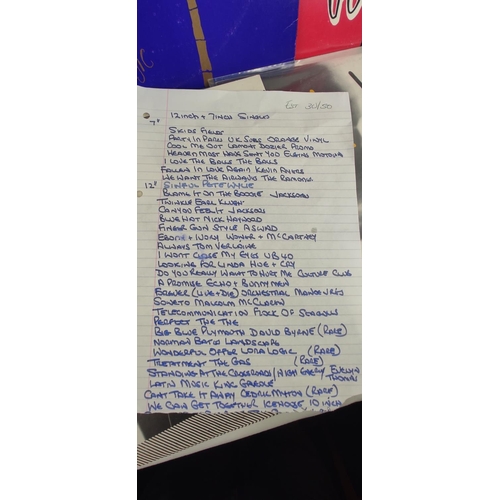 EST 30/50
12 INCH + 7 INCH SINGLES
7"
SKIDS FIELDS
PARTY IN PARIS UK SUBS ORANGE VINYL
COOL ME OUT LAMONT DOZIER PROMO
HEAVEN MUST HAVE SENT YOU ELGINS MOTOWN
I LOVE THE BALLS THE BALLS
FALLING IN LOVE AGAIN KEVIN AYERS
WE WANT THE AIRWAVES THE RAMONES
12" SINFUL PETE WYLIE
BLAME IT ON THE BOOGIE JACKSONS
TWINKLE EARL KLUGH
CAN YOU FEEL IT JACKSONS
BLUE HAT NICK HAYWOOD
FINGER GUN STYLE ASWAD
EBONY + IVORY WONDER + McCARTNEY
ALWAYS TOM VERLAINE
I WONT CLOSE MY EYES UB40
LOOKING FOR LINDA HUE + CRY
DO YOU REALLY WANT TO HURT ME CULTURE CLUB
A PROMISE ECHO + BUNNYMEN
FOREVER (LIVE + DIE) ORCHESTRAL MANOEUVRES
SOWETO MALCOLM McCLAREN
TELECOMMUNICATION FLOCK OF SEAGULLS
PERFECT THE THE
BIG BLUE PLYMOUTH DAVID BYRNE (RARE)
NORMAN BATES LANDSCAPE
WONDERFUL OFFER LORA LOGIC (RARE)
TREATMENT THE GAS (RARE)
STANDING AT THE CROSSROADS / HIGH ENERGY EVELYN THOMAS
LATIN MUSIC KING GREGOE
CANT TAKE IT AWAY CEDRIC MYTON (RARE)
WE CAN GET TOGETHER ICEHOUSE 10 INCH